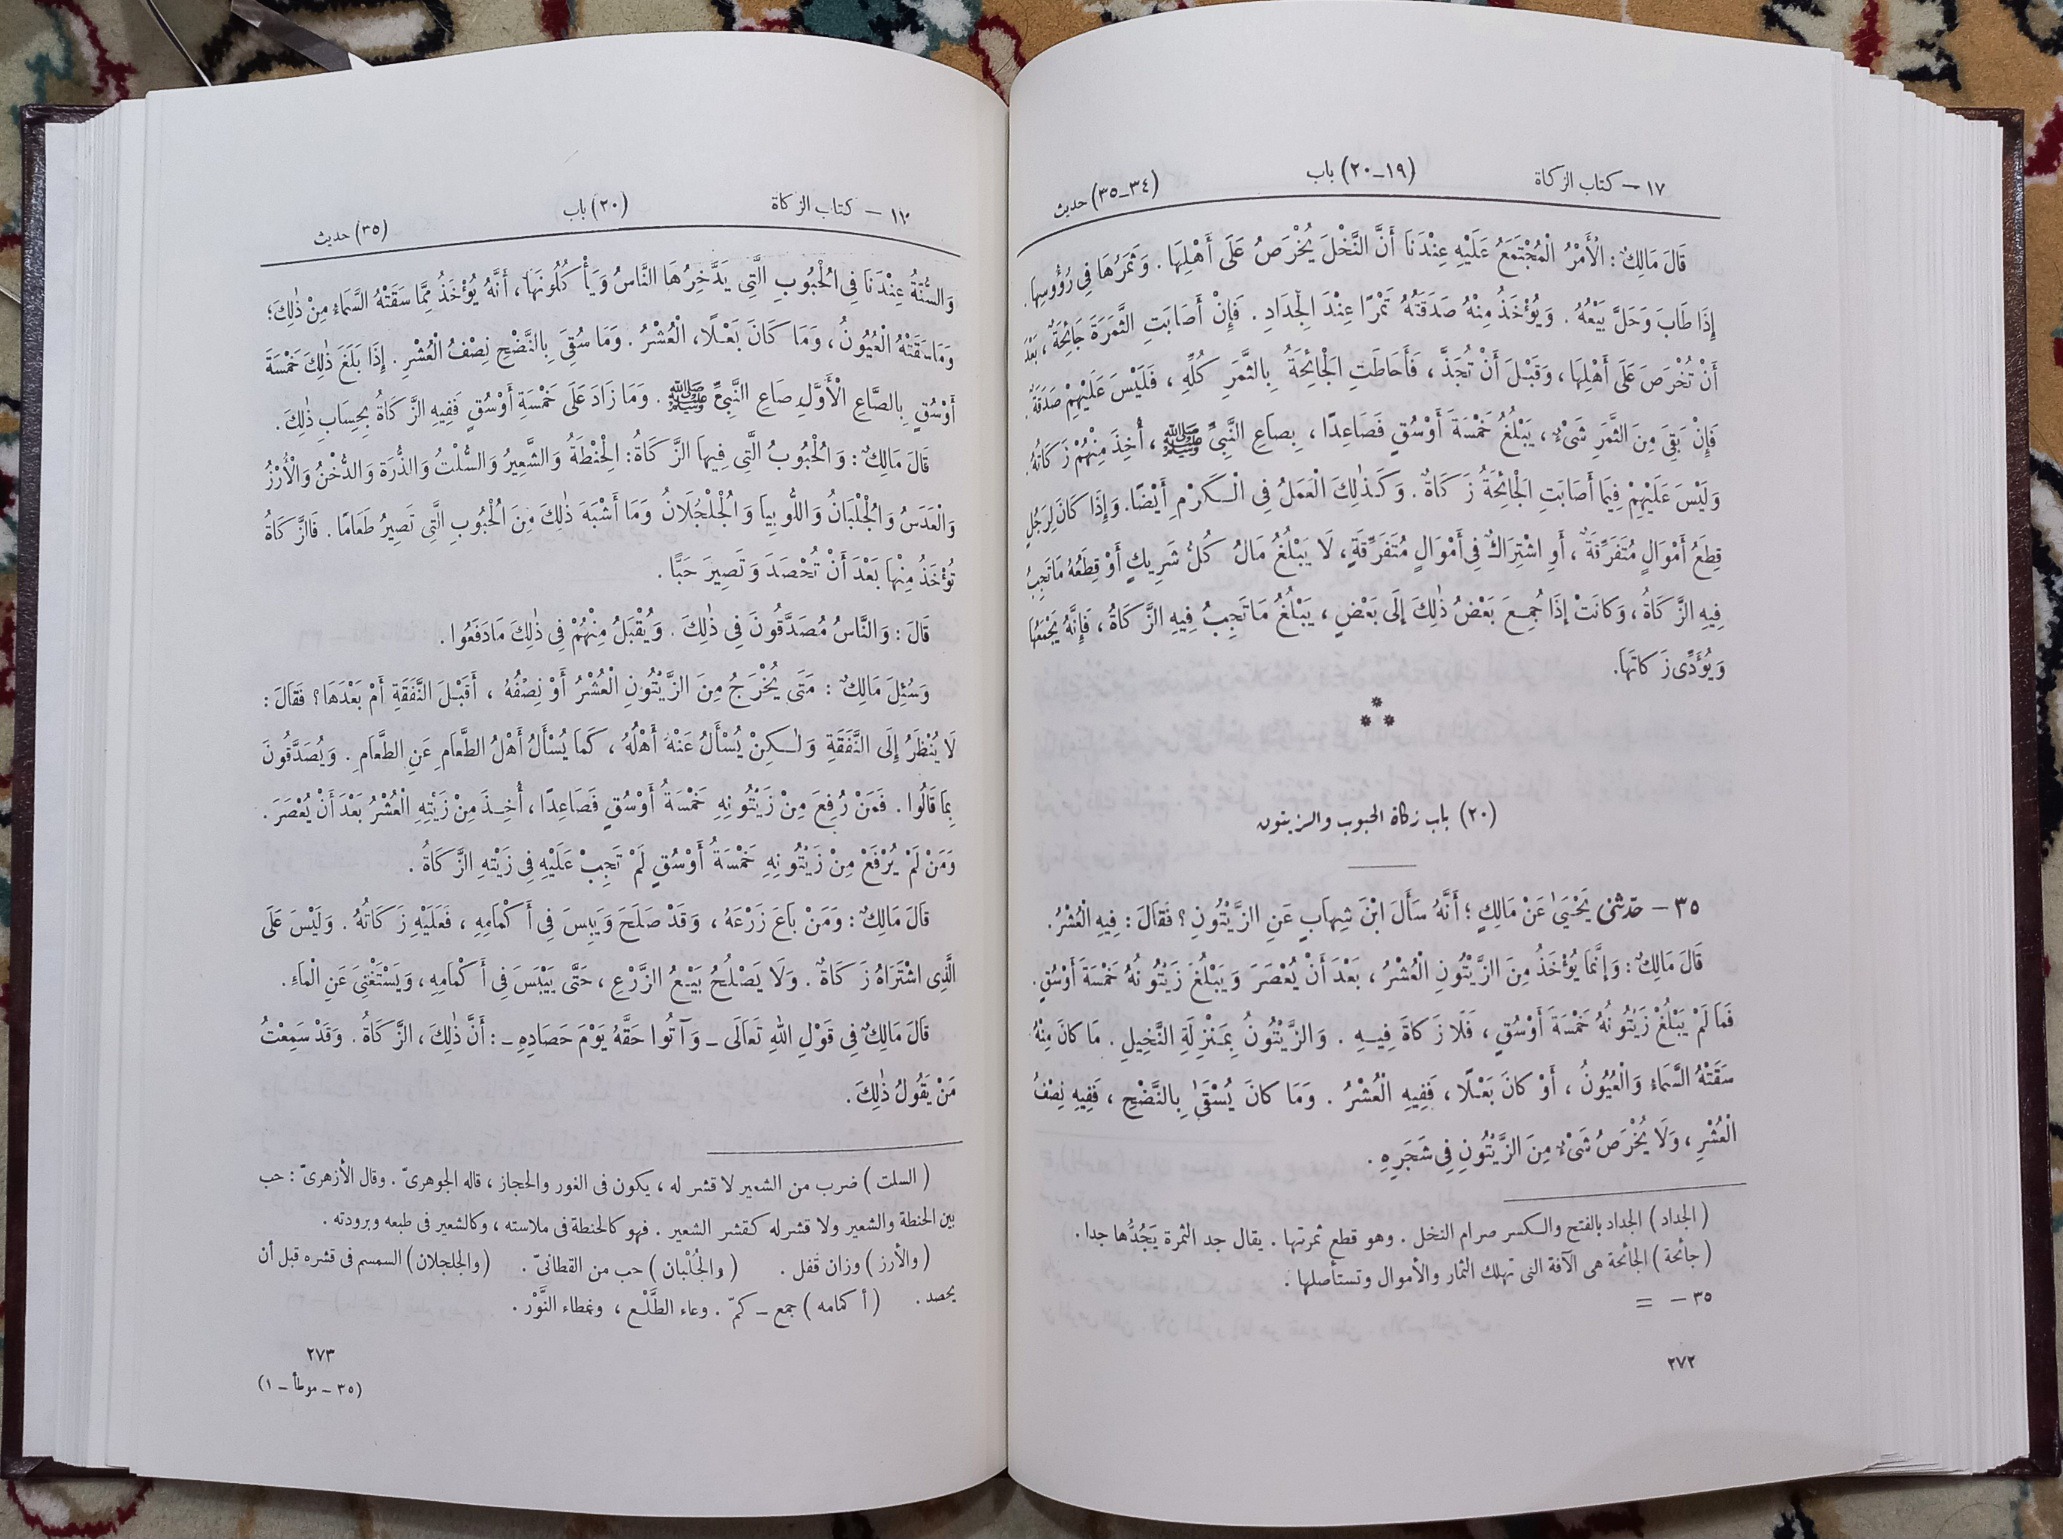 ١٧ – كتاب الزكاة (١٩–٢٠) باب (٣٤–٣٥) حديث
قَالَ مَالِكٌ: الْأَمْرُ الْمُجْتَمَعُ عَلَيْهِ عِنْدَنَا أَنَّ النَّخْلَ يُخْرَصُ عَلَى أَهْلِهَا . وَثَمَرُهَا فِي رُؤُوسِهَا .
إِذَا طَابَ وَحَلَّ بَيْعُهُ . وَيُؤْخَذُ مِنْهُ صَدَقَتُهُ تَمْرًا عِنْدَ الْجِدَادِ . فَإِنْ أَصَابَتِ الثَّمَرَةَ جَائِحَةٌ ، بَعْدَ
أَنْ تُخْرَصَ عَلَى أَهْلِهَا ، وَقَبْلَ أَنْ تُجَذَّ ، فَأَحَاطَتِ الْجَائِحَةُ بِالثَّمَرِ كُلِّهِ ، فَلَيْسَ عَلَيْهِمْ صَدَقَةٌ .
فَإِنْ بَقِيَ مِنَ الثَّمَرِ شَيْءٌ ، يَبْلُغُ خَمْسَةَ أَوْسُقٍ فَصَاعِدًا ، بِصَاعِ النَّبِيِّ ﷺ ، أُخِذَ مِنْهُمْ زَكَاتُهُ .
وَلَيْسَ عَلَيْهِمْ فِيمَا أَصَابَتِ الْجَائِحَةُ زَكَاةٌ . وَكَذٰلِكَ الْعَمَلُ فِي الْكَرْمِ أَيْضًا. وَإِذَا كَانَ لِرَجُلٍ
قِطَعُ أَمْوَالٍ مُتَفَرِّقَةٌ ، أَوِ اشْتِرَاكٌ فِي أَمْوَالٍ مُتَفَرِّقَةٍ ، لَا يَبْلُغُ مَالُ كُلِّ شَرِيكٍ أَوْ قِطَعُهُ مَا تَجِبُ
فِيهِ الزَّكَاةُ ، وَكَانَتْ إِذَا جُمِعَ بَعْضُ ذٰلِكَ إِلَى بَعْضٍ ، يَبْلُغُ مَا تَجِبُ فِيهِ الزَّكَاةُ ، فَإِنَّهُ يَجْمَعُهَا
وَيُؤَدِّي زَكَاتَهَا.
(٢٠) باب زكاة الحبوب والزيتون
٣٥ – حدّثنى يَحْيَىٰ عَنْ مَالِكٍ ؛ أَنَّهُ سَأَلَ ابْنَ شِهَابٍ عَنِ الزَّيْتُونِ ؟ فَقَالَ : فِيهِ الْعُشْرُ.
قَالَ مَالِكٌ : وَإِنَّمَا يُؤْخَذُ مِنَ الزَّيْتُونِ الْعُشْرُ ، بَعْدَ أَنْ يُعْصَرَ وَيَبْلُغَ زَيْتُونُهُ خَمْسَةَ أَوْسُقٍ .
فَمَا لَمْ يَبْلُغْ زَيْتُونُهُ خَمْسَةَ أَوْسُقٍ ، فَلَا زَكَاةَ فِيهِ . وَالزَّيْتُونُ بِمَنْزِلَةِ النَّخِيلِ . مَا كَانَ مِنْهُ
سَقَتْهُ السَّمَاءُ وَالْعُيُونُ ، أَوْ كَانَ بَعْلًا ، فَفِيهِ الْعُشْرُ . وَمَا كَانَ يُسْقَىٰ بِالنَّضْحِ ، فَفِيهِ نِصْفُ
الْعُشْرِ ، وَلَا يُخْرَصُ شَيْءٌ مِنَ الزَّيْتُونِ فِي شَجَرِهِ .
( الجداد ) الجداد بالفتح والكسر صرام النخل . وهو قطع ثمرتها . يقال جد الثمرة يَجُدُّها جدا .
( جائحة ) الجائحة هى الآفة التى تهلك الثمار والأموال وتستأصلها .
٣٥ – =
٢٧٢
١٧ – كتاب الزكاة (٢٠) باب (٣٥) حديث
وَالسُّنَّةُ عِنْدَنَا فِي الْحُبُوبِ الَّتِي يَدَّخِرُهَا النَّاسُ وَيَأْكُلُونَهَا ، أَنَّهُ يُؤْخَذُ مِمَّا سَقَتْهُ السَّمَاءُ مِنْ ذٰلِكَ ،
وَمَا سَقَتْهُ الْعُيُونُ ، وَمَا كَانَ بَعْلًا ، الْعُشْرُ . وَمَا سُقِيَ بِالنَّضْحِ نِصْفُ الْعُشْرِ . إِذَا بَلَغَ ذٰلِكَ خَمْسَةَ
أَوْسُقٍ بِالصَّاعِ الْأَوَّلِ صَاعِ النَّبِيِّ ﷺ . وَمَا زَادَ عَلَى خَمْسَةِ أَوْسُقٍ فَفِيهِ الزَّكَاةُ بِحِسَابِ ذٰلِكَ .
قَالَ مَالِكٌ : وَالْحُبُوبُ الَّتِي فِيهَا الزَّكَاةُ : الْحِنْطَةُ وَالشَّعِيرُ وَالسُّلْتُ وَالذُّرَةُ وَالدُّخْنُ وَالْأُرْزُ
وَالْعَدَسُ وَالْجُلْبَانُ وَاللُّوبِيَا وَالْجُلْجُلَانُ وَمَا أَشْبَهَ ذٰلِكَ مِنَ الْحُبُوبِ الَّتِي تَصِيرُ طَعَامًا . فَالزَّكَاةُ
تُؤْخَذُ مِنْهَا بَعْدَ أَنْ تُحْصَدَ وَتَصِيرَ حَبًّا .
قَالَ : وَالنَّاسُ مُصَدَّقُونَ فِي ذٰلِكَ . وَيُقْبَلُ مِنْهُمْ فِي ذٰلِكَ مَا دَفَعُوا .
وَسُئِلَ مَالِكٌ : مَتَى يُخْرَجُ مِنَ الزَّيْتُونِ الْعُشْرُ أَوْ نِصْفُهُ ، أَقَبْلَ النَّفَقَةِ أَمْ بَعْدَهَا ؟ فَقَالَ :
لَا يُنْظَرُ إِلَى النَّفَقَةِ وَلٰكِنْ يُسْأَلُ عَنْهُ أَهْلُهُ ، كَمَا يُسْأَلُ أَهْلُ الطَّعَامِ عَنِ الطَّعَامِ . وَيُصَدَّقُونَ
بِمَا قَالُوا . فَمَنْ رُفِعَ مِنْ زَيْتُونِهِ خَمْسَةُ أَوْسُقٍ فَصَاعِدًا ، أُخِذَ مِنْ زَيْتِهِ الْعُشْرُ بَعْدَ أَنْ يُعْصَرَ .
وَمَنْ لَمْ يُرْفَعْ مِنْ زَيْتُونِهِ خَمْسَةُ أَوْسُقٍ لَمْ تَجِبْ عَلَيْهِ فِي زَيْتِهِ الزَّكَاةُ .
قَالَ مَالِكٌ : وَمَنْ بَاعَ زَرْعَهُ ، وَقَدْ صَلَحَ وَيَبِسَ فِي أَكْمَامِهِ ، فَعَلَيْهِ زَكَاتُهُ . وَلَيْسَ عَلَى
الَّذِي اشْتَرَاهُ زَكَاةٌ . وَلَا يَصْلُحُ بَيْعُ الزَّرْعِ ، حَتَّى يَيْبَسَ فِي أَكْمَامِهِ ، وَيَسْتَغْنِيَ عَنِ الْمَاءِ .
قَالَ مَالِكٌ فِي قَوْلِ اللهِ تَعَالَى – وَآتُوا حَقَّهُ يَوْمَ حَصَادِهِ – : أَنَّ ذٰلِكَ ، الزَّكَاةُ . وَقَدْ سَمِعْتُ
مَنْ يَقُولُ ذٰلِكَ .
( السلت ) ضرب من الشعير لا قشر له ، يكون فى الغور والحجاز ، قاله الجوهرىّ . وقال الأزهرىّ : حب
بين الحنطة والشعير ولا قشر له كقشر الشعير . فهو كالحنطة فى ملاسته ، وكالشعير فى طبعه وبرودته .
( والأرز ) وزان قُفل . ( والجُلْبان ) حب من القطانىّ . ( والجلجلان ) السمسم فى قشره قبل أن
يحصد . ( أكمامه ) جمع – كمّ . وعاء الطَّلْع ، وغطاء النَّوْر .
٢٧٣
(٣٥ – موطأ – ١)